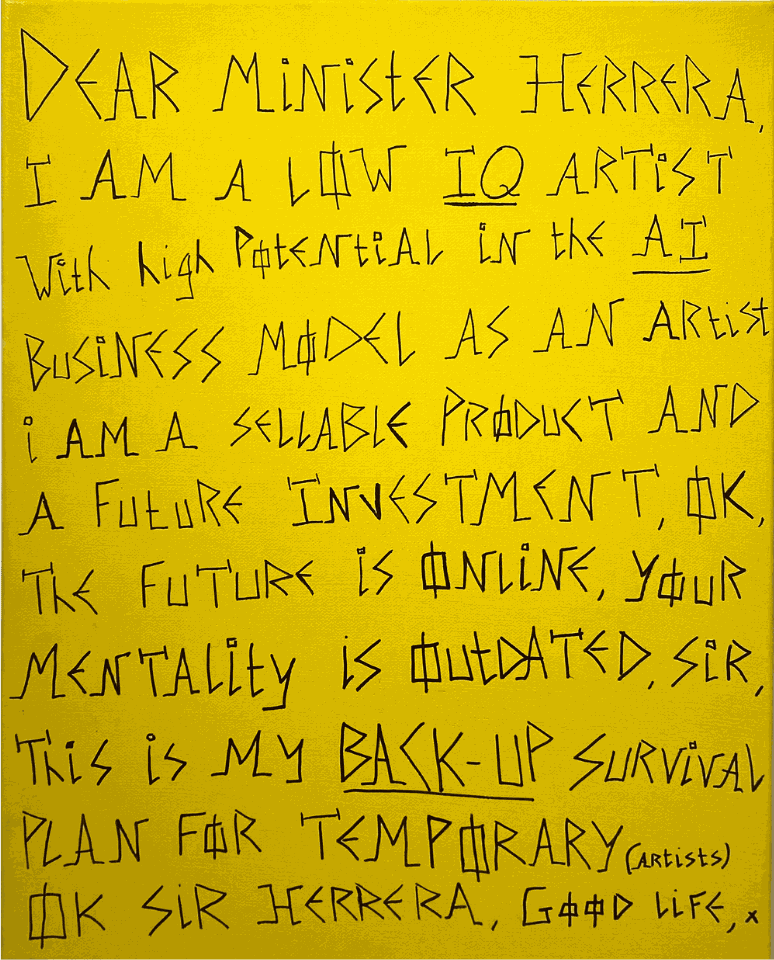 DEAR MiNiStER HERRERA,
I AM A LOW IQ ARTiST
With high POtENtiAL iN the AI
BuSiNESS MODEL AS AN ARtist
i AM A SELLABLE PRODuCT AND
A FutuRE INvESTMENT, OK,
ThE FuTURE iS ONLiNE, YOuR
MENTALity iS OutDATED, SiR,
This is MY BACK-UP SuRViVAL
PLAN FOR TEMPORARY (ARtists)
OK SiR HERRERA, GOOD LiFE, x